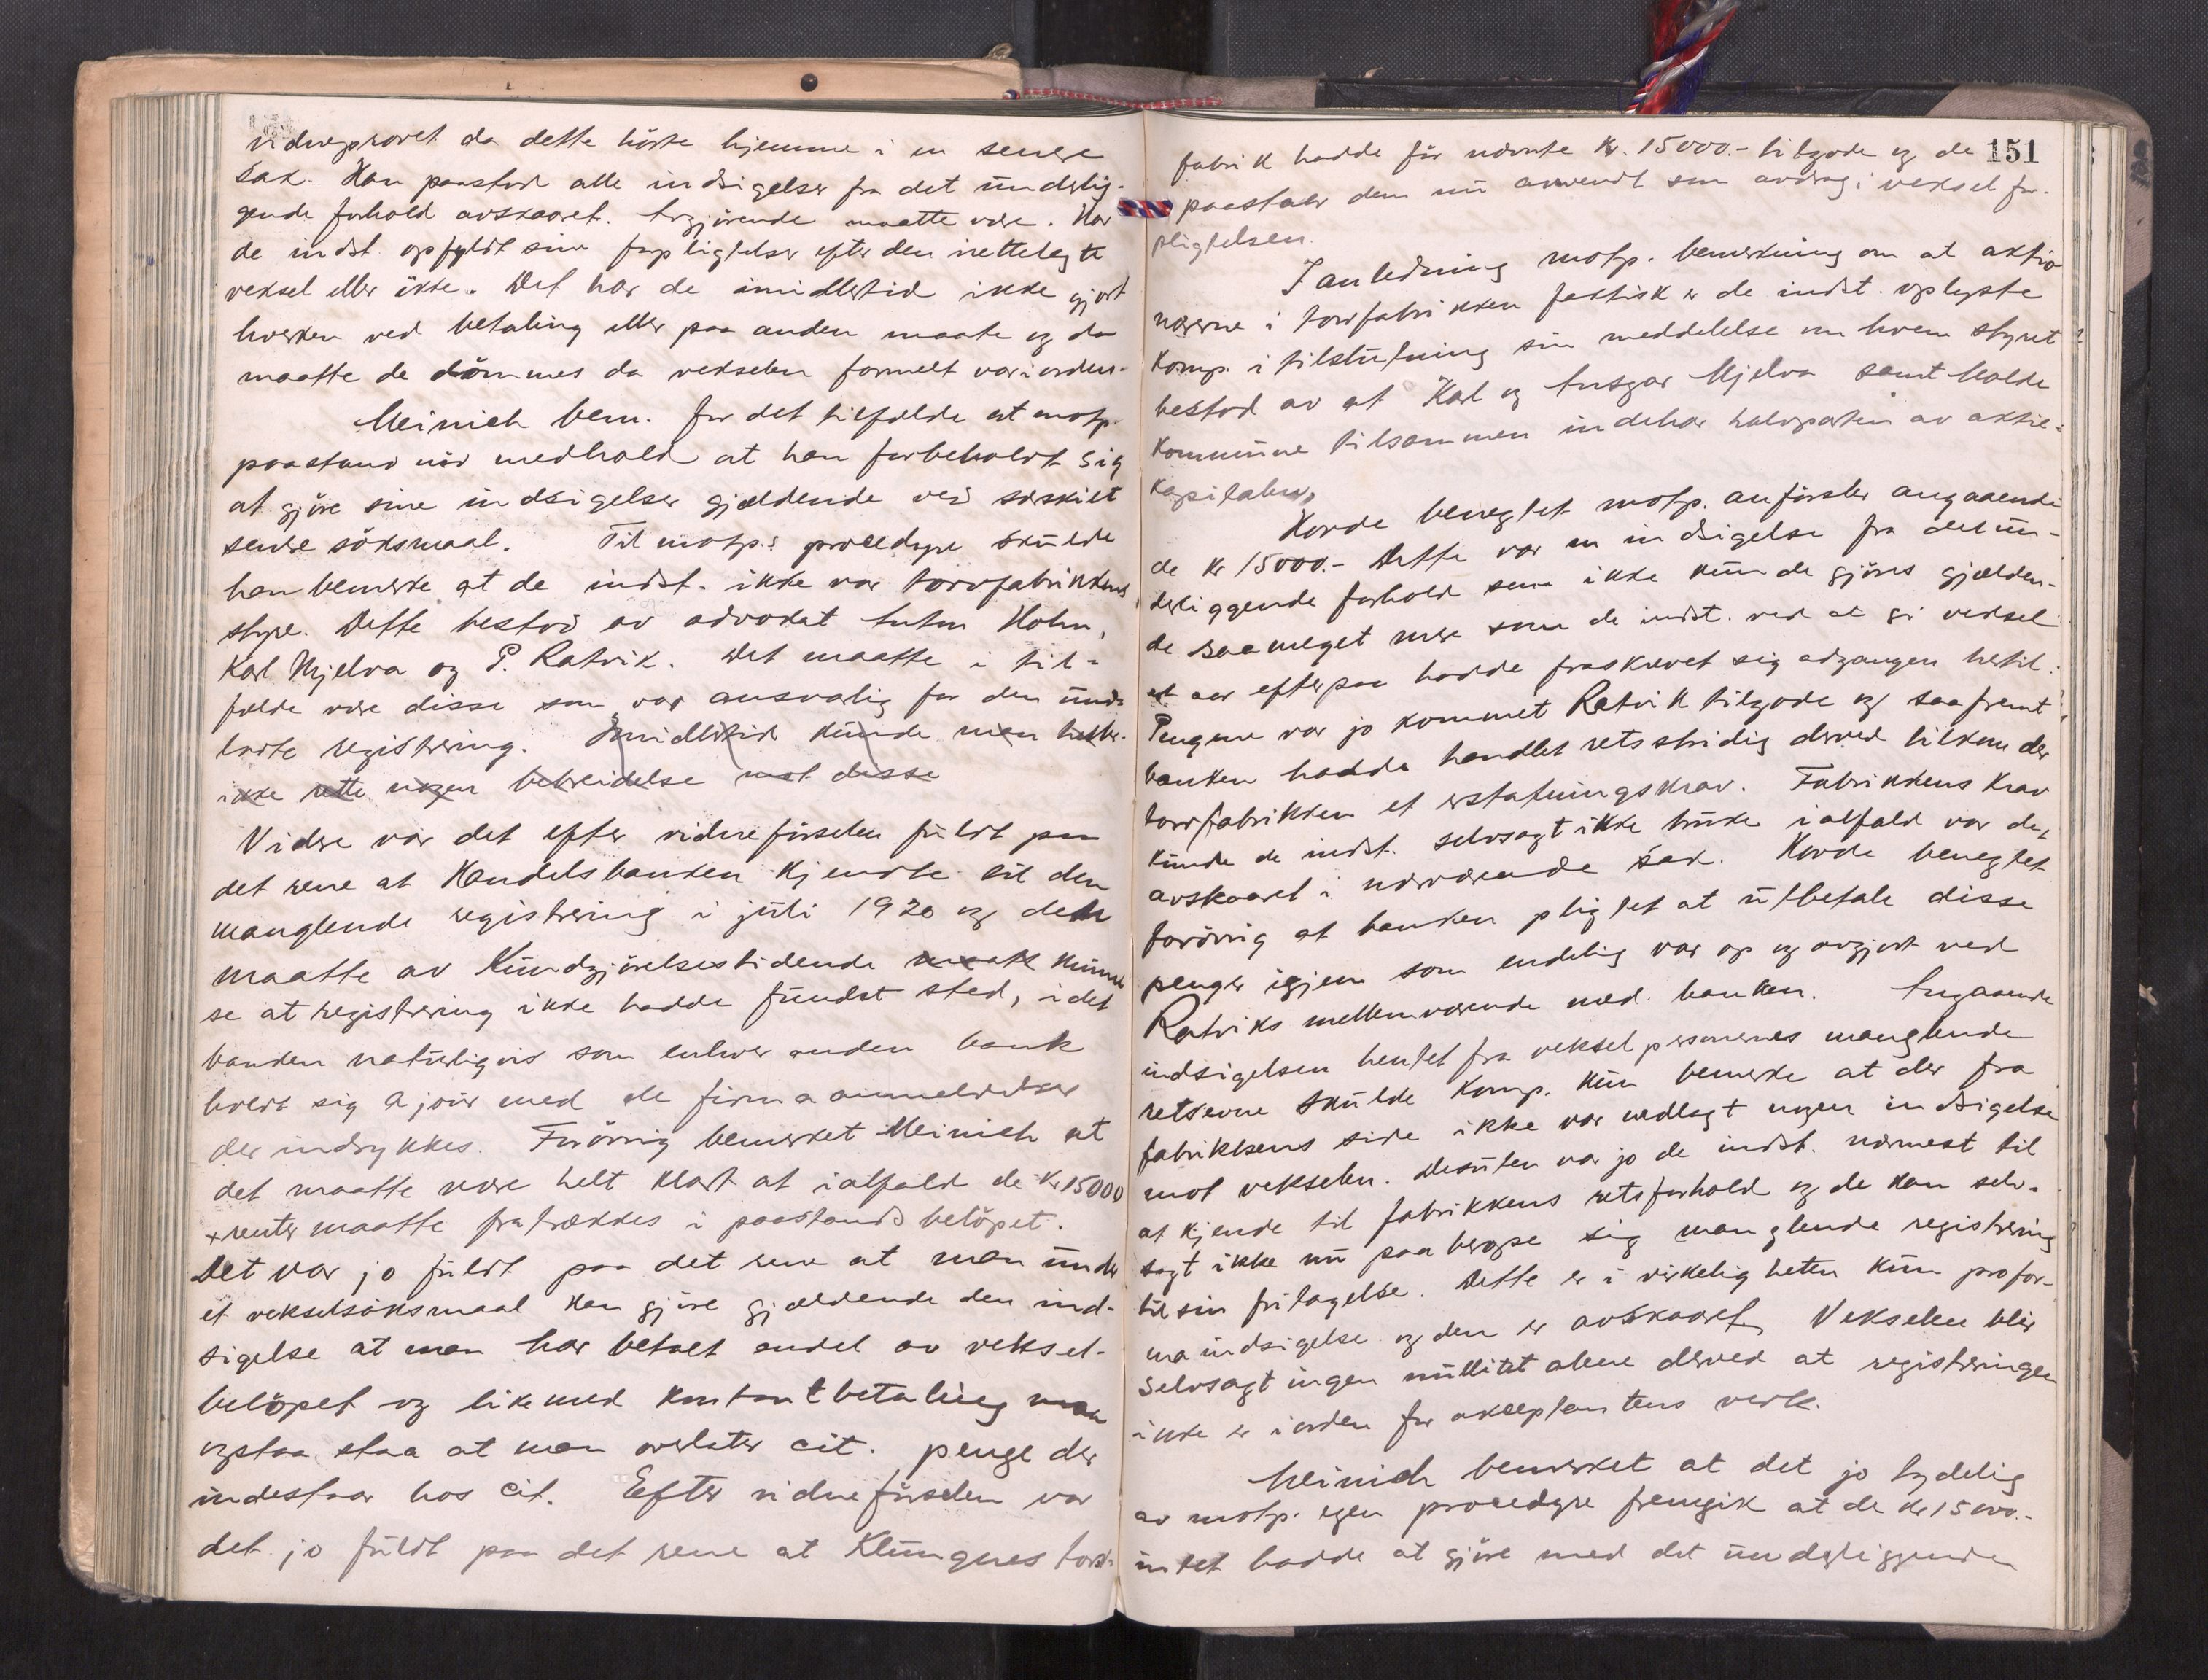 vidneprovet da dette hörte hjemme i en senere
sak. Han paastod alle indsigelser fra det underlig-
gende forhold avskaaret. Avgjörende maatte være. Har
de indst. opfyldt sine forpligtelser efter den rettelagte
veksel eller ikke. Det har de imidlertid ikke gjort
hverken ved betaling eller paa anden maate og da
maatte de dömmes da vekselen formelt var i orden.
Meinich bem. for det tilfælde at motp.
paastand nöd medhold at han forbeholdt sig
at gjöre sine indsigelser gjældende ved særskilt
senere söksmaal. Til motp.s procedyre skulde
han bemerke at de indst. ikke var torvfabrikkens
styre. Dette bestod av advokat Anton Holm,
Karl Mjelva og P. Ratvik. Det maatte i til-
fælde være disse som var ansvarlig for den und-
latte registrering. Imidlertid kunde man heller
ikke rette nogen bebreidelse mot disse
Videre var det efter vidneförselen fuldt paa
det rene at Handelsbanken kjendte til den
manglende registrering i juli 1920 og den
maatte av Kundgjörelsestidende maatte kunne
se at registrering ikke hadde fundet sted, idet
banken naturligvis som enhver anden bank
holdt sig a jour med de firmaanmeldelser
der indrykkes. Forövrig bemerket Meinich at
det maatte være helt klart at ialfald de Kr 15000
+ renter maatte fratrækkes i paastandsbelöpet.
Det var jo fuldt paa det rene at man under
et vekselsöksmaal kan gjöre gjældende den ind-
sigelse at man har betalt endel av veksel-
belöpet og like med kontantbetaling maa
ogsaa staa at man overlater cit. penge der
indestaar hos cit. Efter vidneförselen var
det jo fuldt paa det rene at Klungnes torv-
151
fabrik hadde før nævnte Kr. 15000.- tilgode og de
paastaar dem nu anvendt som avdrag i veksel for-
pligtelsen.
I anledning motp. bemerkning om at aktio-
nærerne i torvfabrikken faktisk er de indst. oplyste
komp. i tilslutning sin meddelelse om hvem styret
bestod av at Karl og Ansgar Mjelva samt Molde
kommune tilsammen indehar halvparten av aktie-
kapitalen.
Hovde benegtet motp. anförsler angaaende
de Kr 15000.- Dette var en indsigelse fra det un-
derliggende forhold som ikke kunde gjöres gjælden-
de saameget mere som de indst. ved at gi veksel
et aar efterpaa hadde fraskrevet sig adgangen hertil.
Pengene var jo kommet Ratvik tilgode og saafremt
banken hadde handlet retsstridig derved tilkom der
torvfabrikken et erstatningskrav. Fabrikkens krav
kunde de indst. selvsagt ikke bruke ialfald var det
avskaaret i nærværende sak. Hovde benegtet
forövrig at banken pligtet at utbetale disse
penger igjen som endelig var op og avgjort ved
Ratviks mellemværende med banken. Angaaende
indsigelsen hentet fra vekselpersonernes manglende
retsevne skulde komp. kun bemerke at der fra
fabrikkens side ikke var nedlagt nogen indsigelse
mot vekselen. Desuten var jo de indst. nærmest til
at kjende til fabrikkens retsforhold og de kan selv-
sagt ikke nu paaberope sig manglende registrering
til sin fritagelse. Dette er i virkeligheten kun profor-
ma indsigelse og den er avskaaret. Vekselen blir
selvsagt ingen nullitet alene derved at registreringen
ikke er i orden for akseptantens verk.
Meinich bemerket at det jo tydelig
av motp. egen procedyre fremgik at de kr 15000.-
intet hadde at gjöre med det underliggende